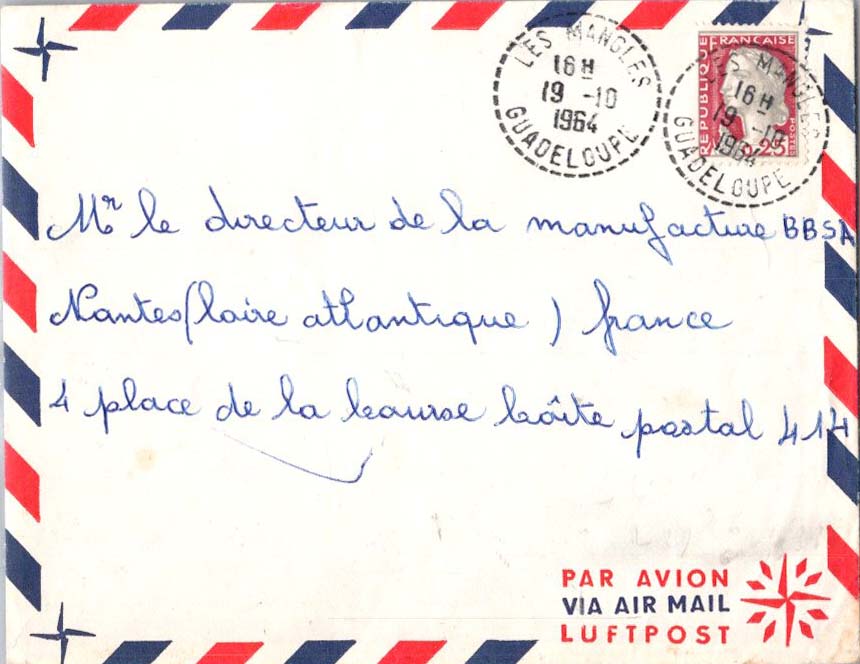 LES MANGLES
16 H
19 -10
1964
GUADELOUPE
REPUBLIQUE FRANCAISE
0,25
POSTES
LES MANGLES
16 H
19 -10
1964
GUADELOUPE
Mr le directeur de la manufacture BBSA
Nantes (loire atlantique) france
4 place de la bourse boîte postal 414
PAR AVION
VIA AIR MAIL
LUFTPOST